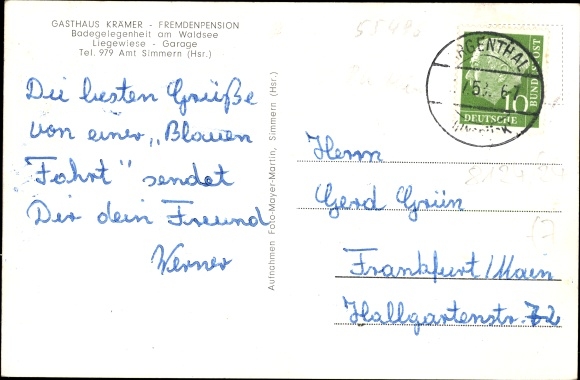 GASTHAUS KRÄMER - FREMDENPENSION
Badegelegenheit am Waldsee
Liegewiese - Garage
Tel. 979 Amt Simmern (Hsr.)
Die besten Grüße
von einer „Blauen
Fahrt" sendet
Dir dein Freund
Werner
Aufnahmen Foto-Mayer-Martin, Simmern (Hsr.)
ARGENTHAL
10
DEUTSCHE
BUNDESPOST
Herrn
Gerd Grün
Frankfurt/Main
Hallgartenstr. 72